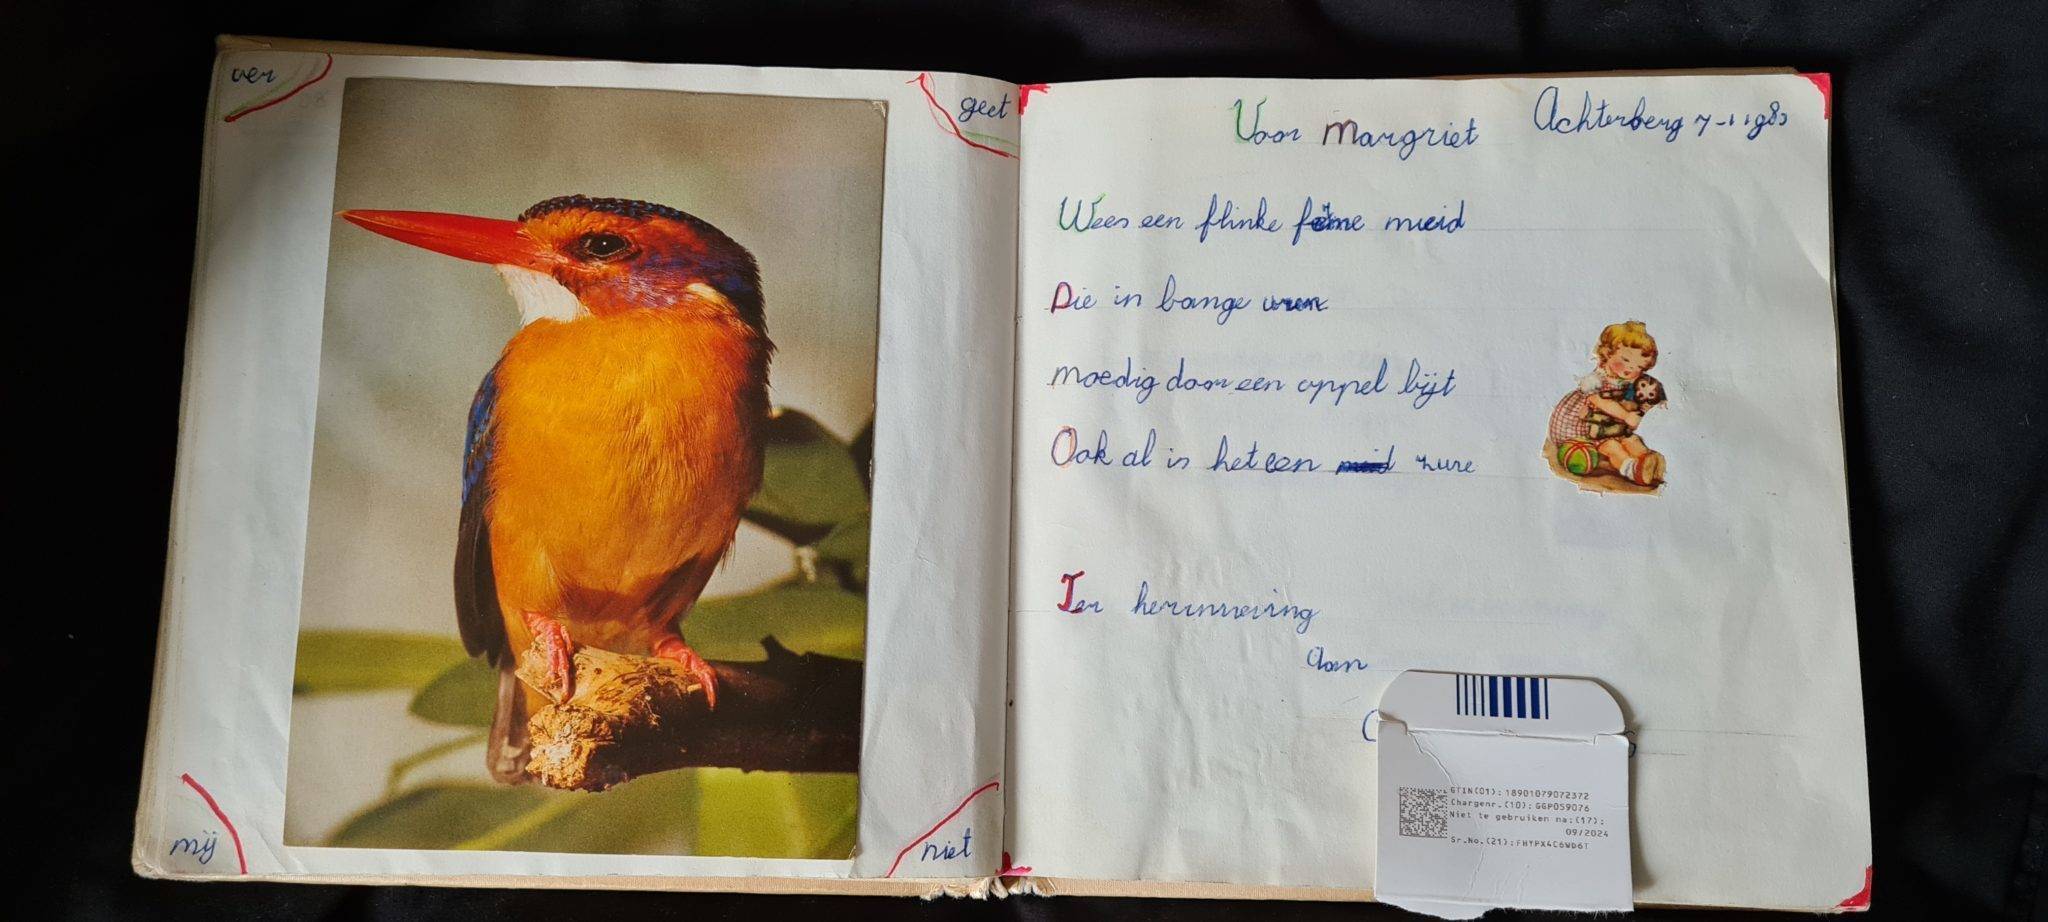 ver
geet
mij
niet
Voor Margriet
Achterberg 7-1 198
Wees een flinke meid
Die in bange uren
moedig door een appel bijt
Ook al is het een zure
Ter herinnering
Aan
C
GTIN(01): 18901079072372
Chargenr.(10): GGP059076
Niet te gebruiken na:(17):
09/2024
Sr.No.(21): FHYPX4C6WD6T